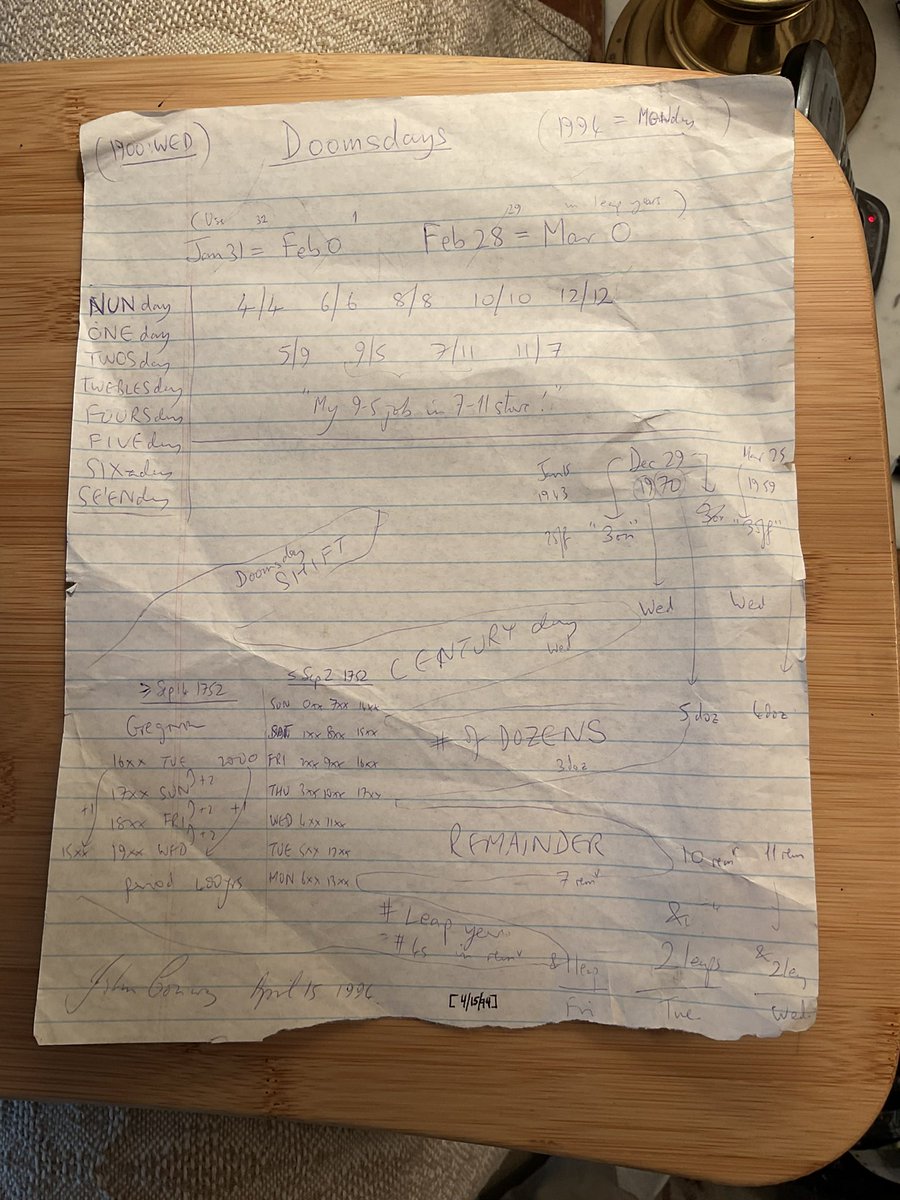 (1900:WED) Doomsdays (1994 = MONday)
(Use 32 1 29 in leap years)
Jan 31 = Feb 0 Feb 28 = Mar 0
NUNday 4/4 6/6 8/8 10/10 12/12
ONEday
TWOSday 5/9 9/5 7/11 11/7
TWEBLESday
FOURSday "My 9-5 job in 7-11 store!"
FIVEday
SIXaday
SE'ENday
Dec 29 Mar 25
1943 1970 1959
"3on" "3off"
Doomsday
SHIFT
Wed Wed
CENTURY day
Wed
≥ Sep 14 1752 ≤ Sep 2 1752
SUN 0xx 7xx 14xx
5doz 6doz
Gregorian
SAT 1xx 8xx 15xx
# of DOZENS
3doz
16xx TUE 2000 FRI 2xx 9xx 16xx
+2
17xx SUN THU 3xx 10xx 17xx
+1 +2 +1
18xx FRI WED 4xx 11xx
+2
REMAINDER
15xx 19xx WED TUE 5xx 12xx
10 remr 11 rem
period 400yrs MON 6xx 13xx
7 remr
# Leap years
= # 4s in remr
& 1 leap 2 leaps & 2 leap
Fri Tue Wed
John Conway April 15 1994
[4/15/94]